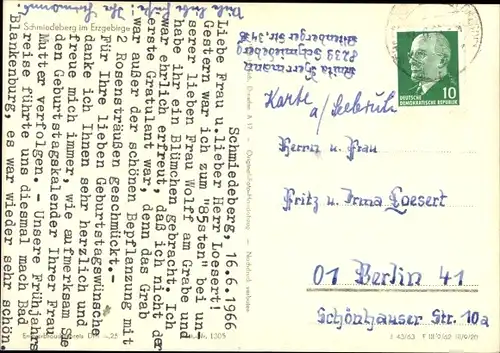 Schmiedeberg im Erzgebirge
Schmiedeberg, 16.6.1966
Liebe Frau u.lieber Herr Loesert!
Gestern war ich zum "85sten" bei un-
serer lieben Frau Wolff am Grabe und
habe ihr ein Blümchen gebracht. Ich
war ehrlich erfreut, daß ich nicht der
erste Gratulant war, denn das Grab
war außer der schönen Bepflanzung mit
2 Rosensträußen geschmückt.-
Für Ihre lieben Geburtstagswünsche
danke ich Ihnen sehr herzlich und
freue mich immer, wie aufmerksam Sie
den Geburtstagskalender Ihrer Frau
Mutter verfolgen. - Unsere Frühjahrs
reise führte uns diesmal nach Bad
Blankenburg, es war wieder sehr schön.
Viele liebe Grüße! Ihr
8239 Schmiedeberg
10
DEUTSCHE
DEMOKRATISCHE REPUBLIK
Karte
a/ Seebruch
Herrn und Frau
Fritz u. Irma Loesert
01 Berlin 41
Schönhauser Str. 10a